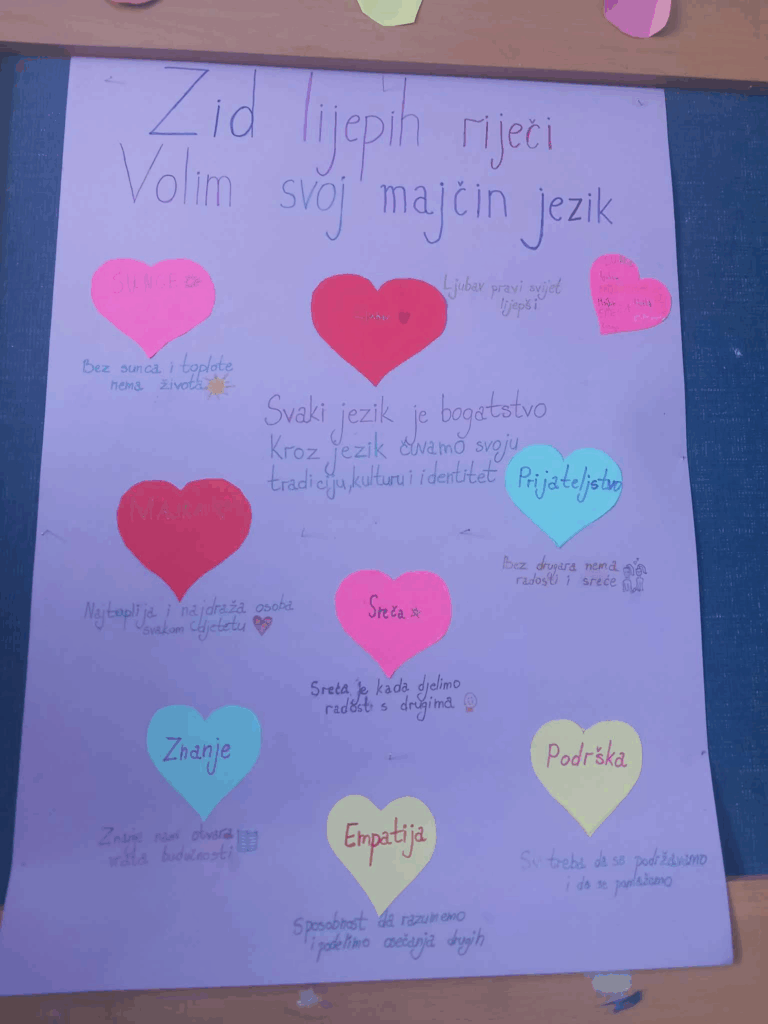 Zid lijepih riječi
Volim svoj majčin jezik
SUNCE
Bez sunca i toplote
nema života
Ljubav pravi svijet
ljepši
Svaki jezik je bogatstvo
Kroz jezik čuvamo svoju
tradiciju, kulturu i identitet
Prijateljstvo
Bez drugara nema
radosti i sreće
MAJKA
Najtoplija i najdraža osoba
svakom djetetu
Sreća
Sreća je kada djelimo
radost s drugima
Znanje
Znanje nam otvara
vrata budućnosti
Podrška
Svi treba da se podržavamo
i da se pomažemo
Empatija
Sposobnost da razumemo
i podelimo osećanja drugih